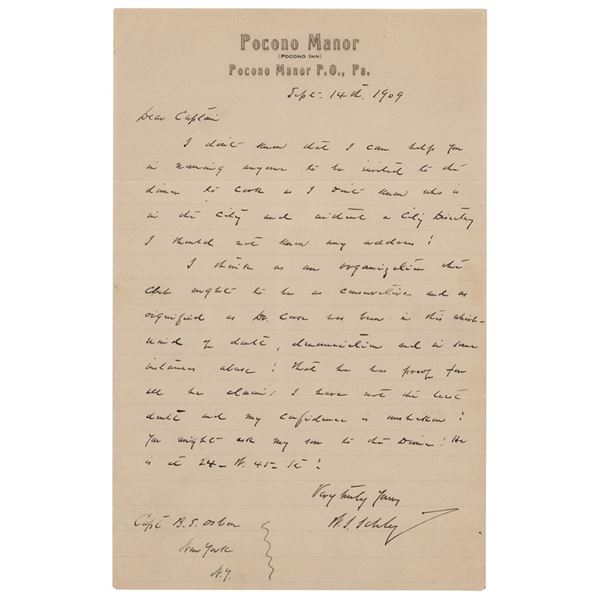 Pocono Manor
(POCONO INN)
Pocono Manor P.O., Pa.
Sept. 14th 1909
Dear Captain
I don't know that I can help you
in naming anyone to be invited to the
dinner to Cook as I don't know who is
in the City and without a City Directory
I should not know any address!
I think as an organization the
Club ought to be as conservative and as
dignified as Dr. Cook has been in this whirl-
wind of doubt, denunciation and in some
instances abuse! That he has proof for
all he claims I have not the least
doubt and my confidence is unshaken!
You might ask my son to the Dinner! He
is at 24- W. 45- St!
Very truly Yours
W. S. Schley
Capt B. S. Osbon
New York
N.Y.